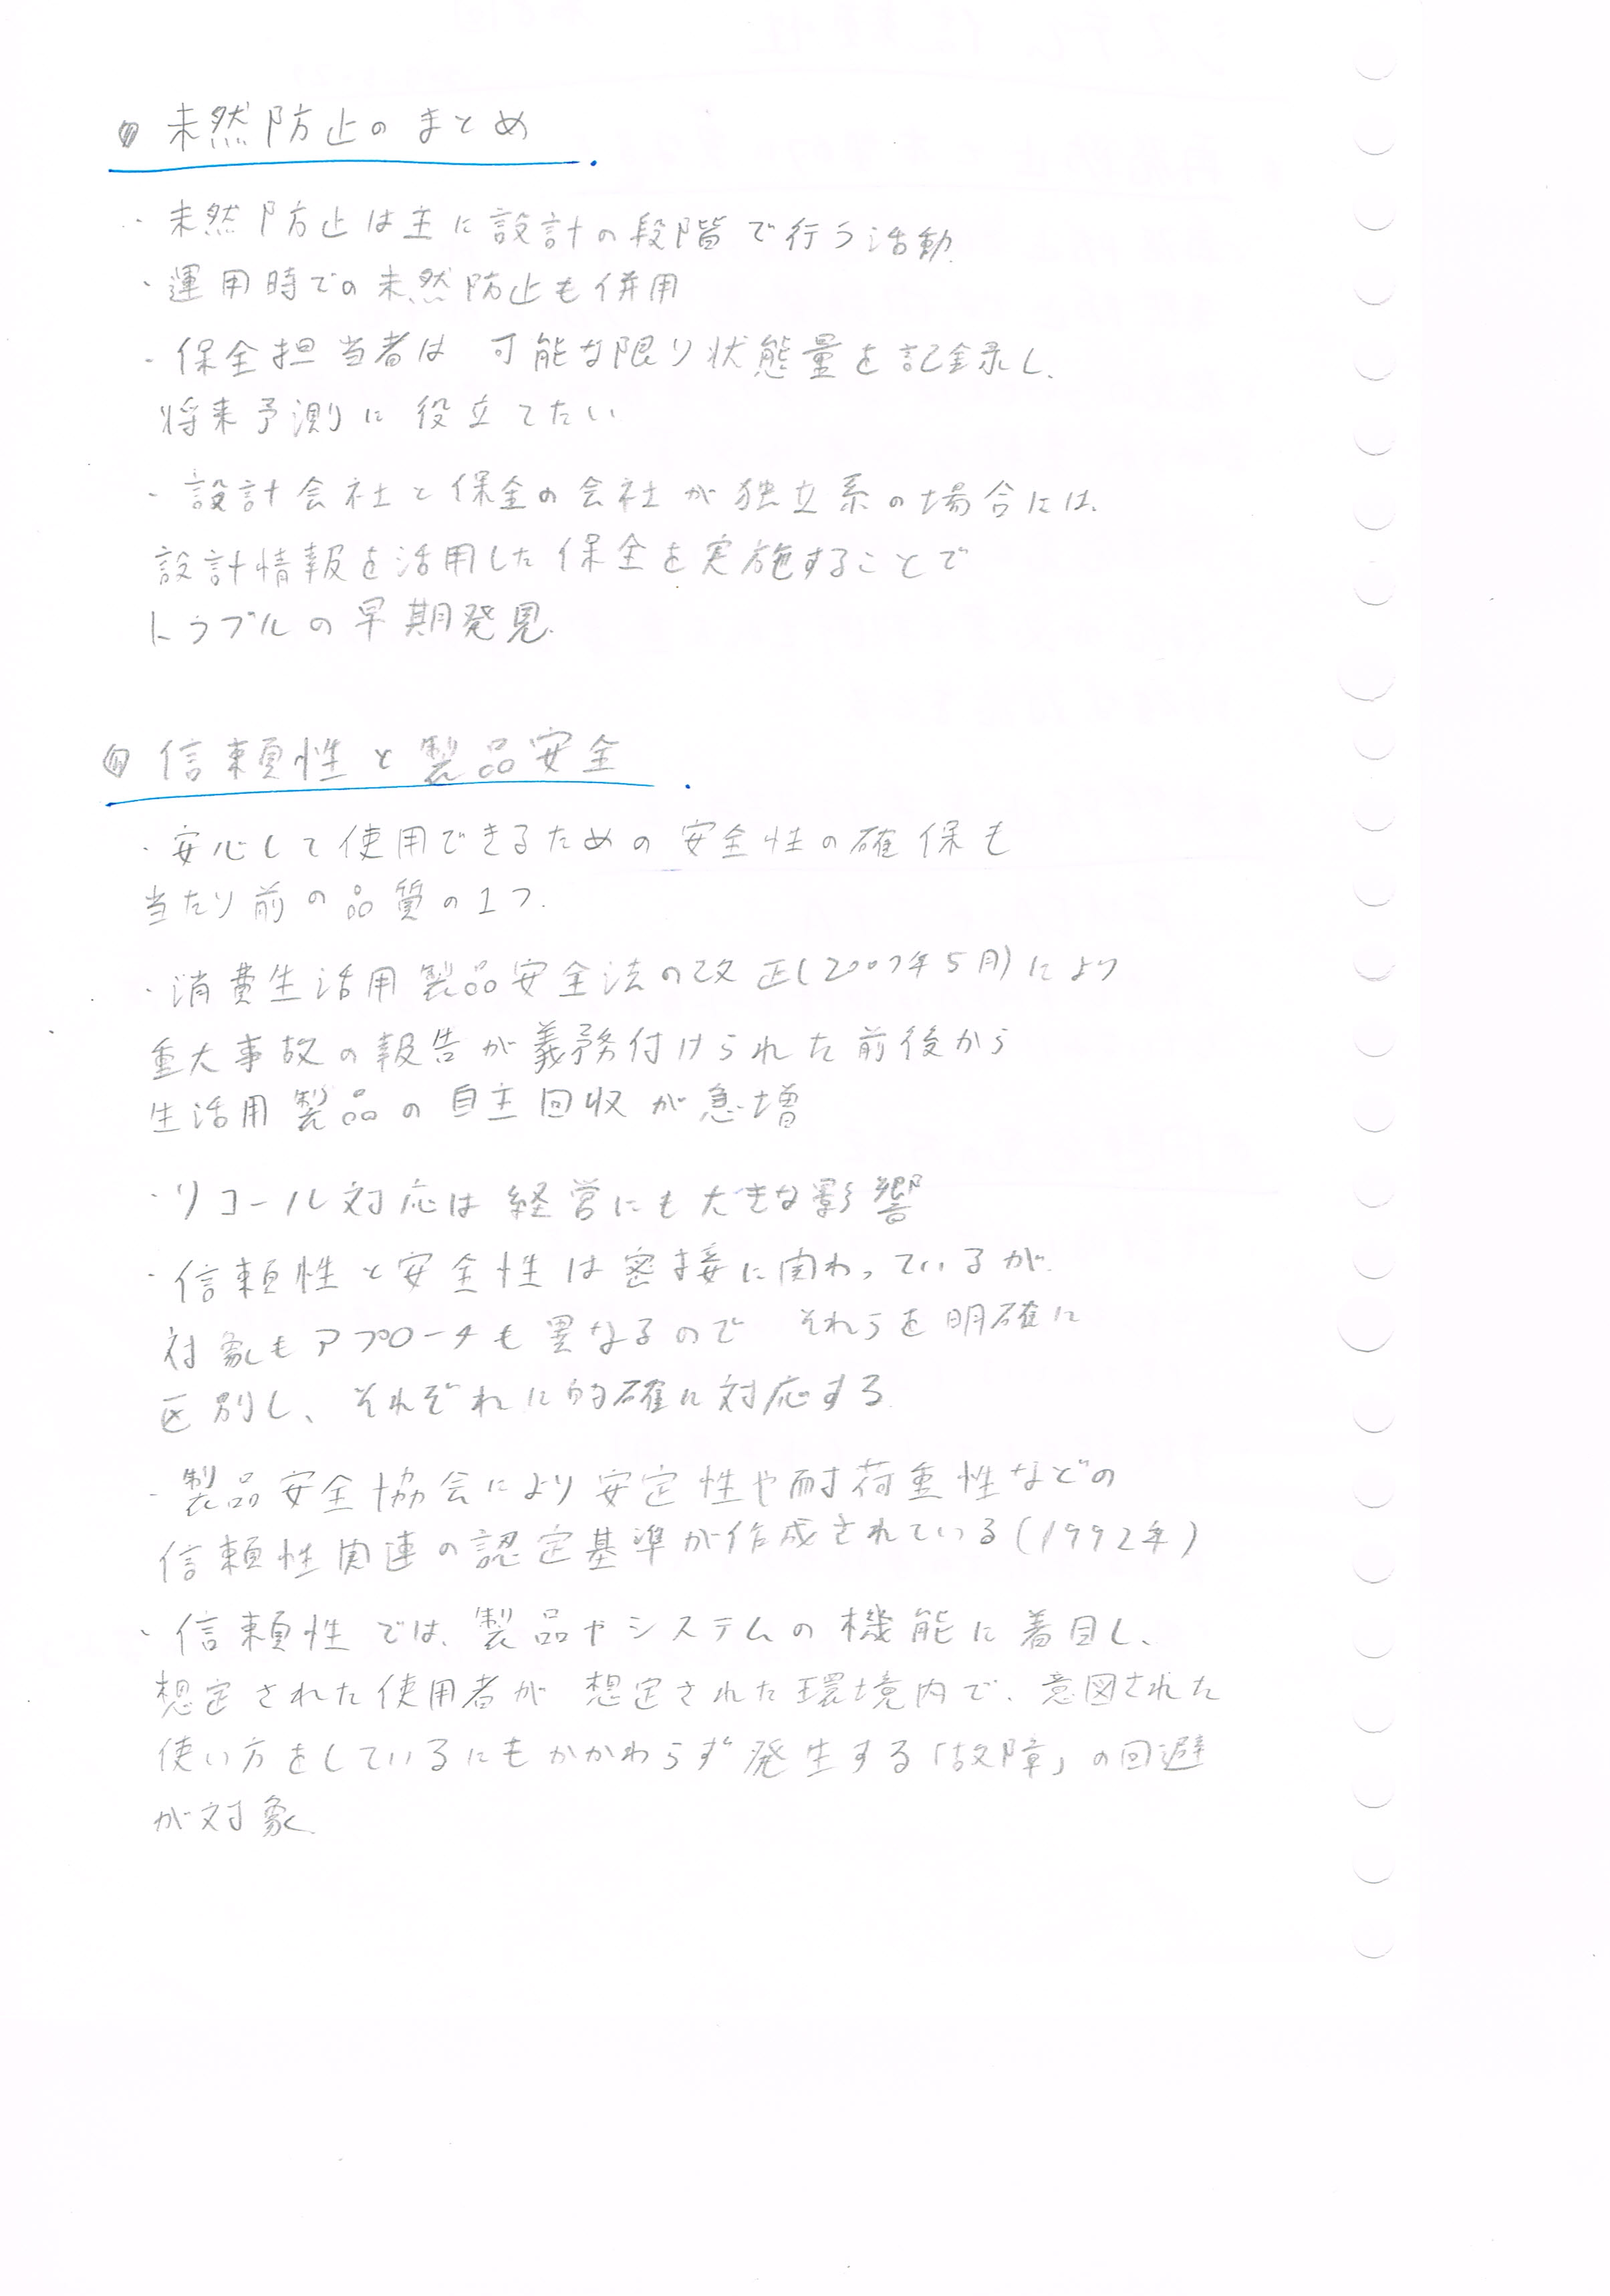 ● 未然防止のまとめ
・未然防止は主に設計の段階で行う活動.
・運用時での未然防止も併用
・保全担当者は 可能な限り状態量を記録し、
将来予測に役立てたい
・設計会社と保全の会社が独立系の場合には、
設計情報を活用した保全を実施することで
トラブルの早期発見.
● 信頼性と製品安全
・安心して使用できるための安全性の確保も
当たり前の品質の1つ.
・消費生活用製品安全法の改正(2007年5月)により
重大事故の報告が義務付けられた前後から
生活用製品の自主回収が急増
・リコール対応は経営にも大きな影響
・信頼性と安全性は密接に関わっているが、
対象もアプローチも異なるので それらを明確に
区別し、それぞれに的確に対応する.
・製品安全協会により安定性や耐荷重性などの
信頼性関連の認定基準が作成されている(1992年)
・信頼性では、製品やシステムの機能に着目し、
想定された使用者が 想定された環境内で、意図された
使い方をしているにもかかわらず発生する「故障」の回避
が対象.